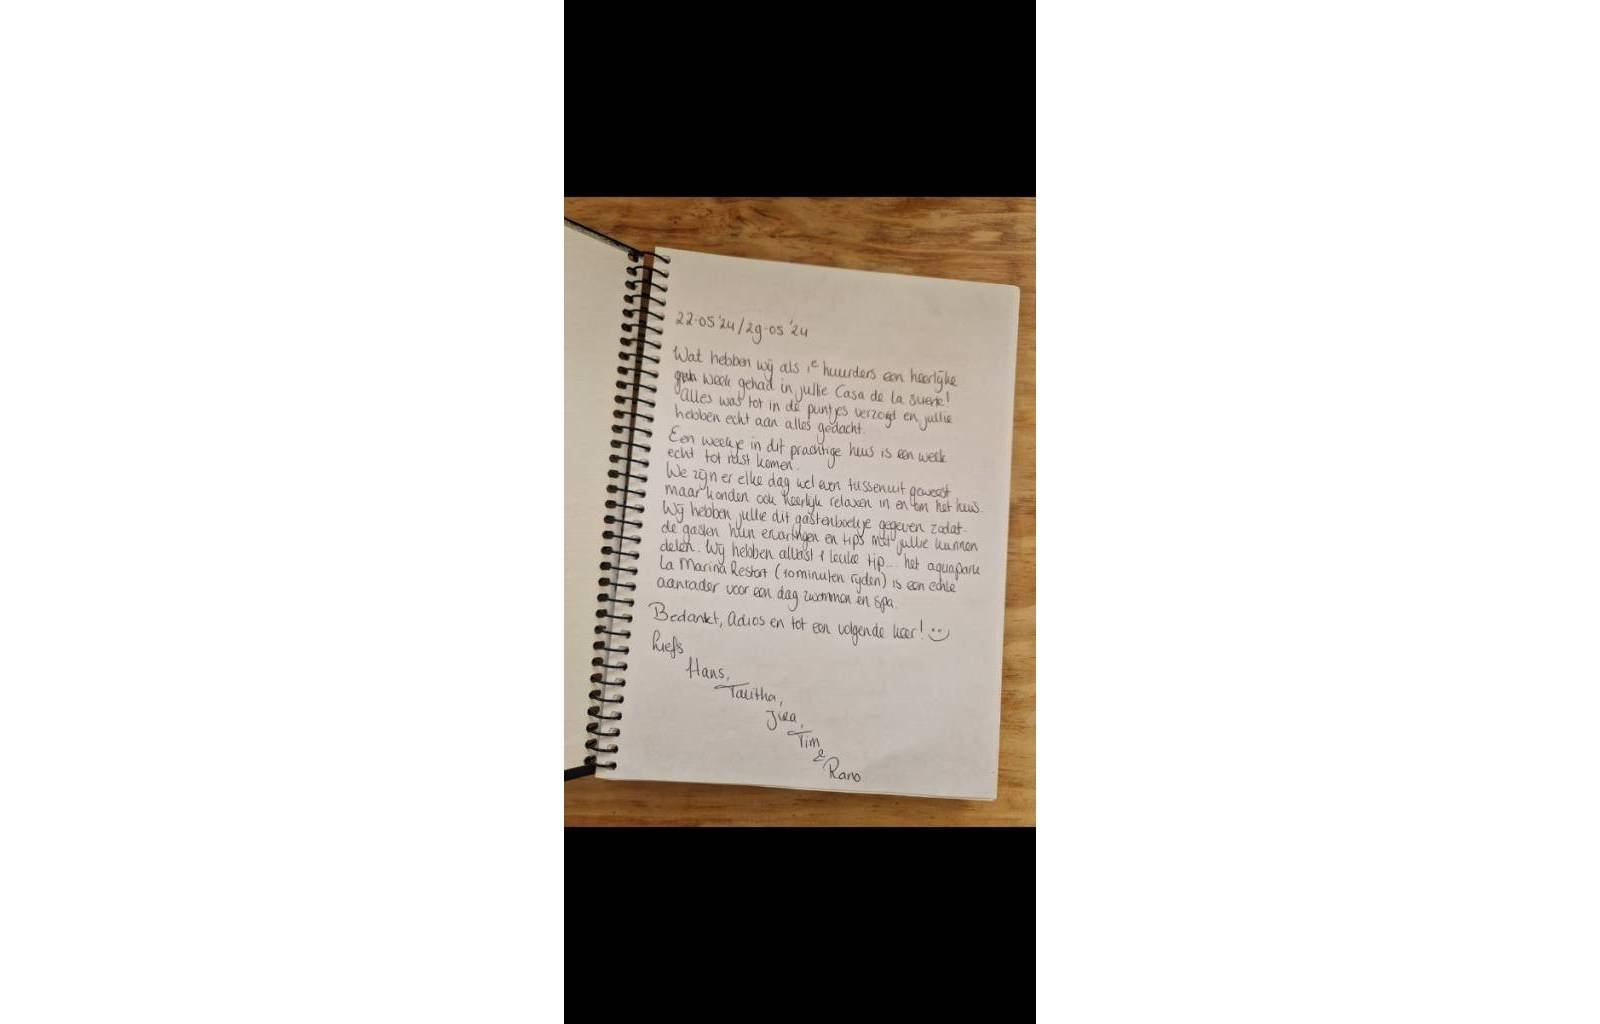 22-05 '24 / 29-05 '24
Wat hebben wij als 1e huurders een heerlijke
week gehad in jullie Casa de la Suerte!
Alles was tot in de puntjes verzorgd en jullie
hebben echt aan alles gedacht.
Een weekje in dit prachtige huis is een week
echt tot rust komen.
We zijn er elke dag wel even tussenuit geweest
maar konden ook heerlijk relaxen in en om het huis.
Wij hebben jullie dit gastenboekje gegeven zodat
de gasten hun ervaringen en tips met jullie kunnen
delen. Wij hebben alvast 1 leuke tip... het aquapark
La Marina Restort (10 minuten rijden) is een echte
aanrader voor een dag zwemmen en spa.
Bedankt, Adios en tot een volgende keer!
liefs
Hans,
Talitha,
Jira,
Tim
&
Rano